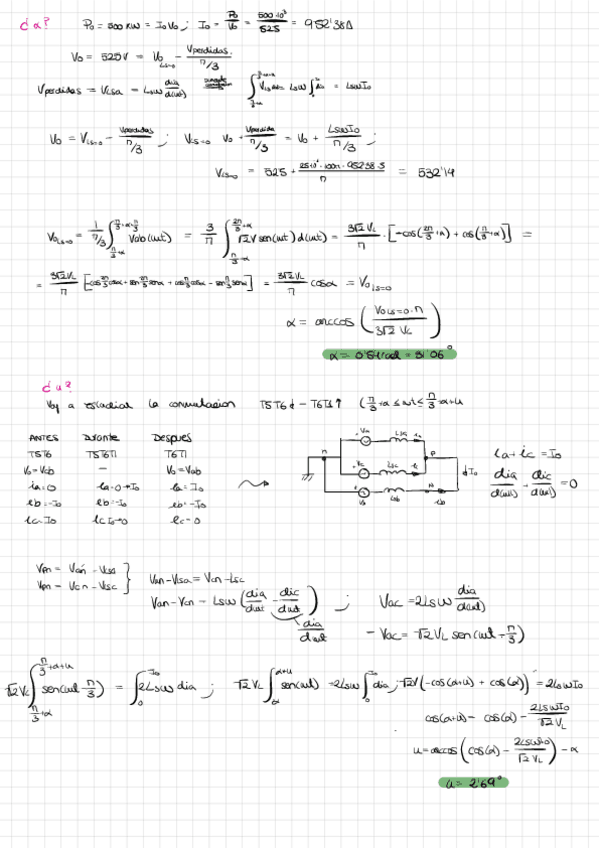 ¿α? P₀ = 500 kW = I₀V₀ ; I₀ = P₀/V₀ = 500·10³/525 = 952'38A
V₀ = 525V = V₀ Ls=0 − Vperdidas/π/3
Vperdidas = VLsa = Lsω dia/d(ωt) ∫ VLs dωt = Lsω ∫ dia = LsωI₀
V₀ = VLs=0 − Vperdidas/π/3 ; VLs=0 V₀ + Vperdida/π/3 = V₀ + LsωI₀/π/3 ;
= 532'14
V₀Ls=0 = 1/π/3 ∫ Vab(ωt) = 3/π ∫ √2 V sen(ωt) d(ωt) = 3√2 VL/π · [−cos(2π/3+α) + cos(π/3+α)] =
= 3√2 VL/π [−cos 2π/3 cosα + sen 2π/3 senα + cos π/3 cosα − sen π/3 senα] = 3√2 VL/π cosα = V₀Ls=0
α = arccos (V₀Ls=0·π / 3√2 VL)
α = 0'54rad = 31'06°
¿u?
Voy a estudiar la conmutacion T5T6↓ − T6T1↑ (π/3+α ≤ ωt ≤ π/3+α+u
ANTES Durante Despues
T5T6 T5T6T1 T6T1
V₀ = Vcb — V₀ = Vab
ia = 0 ia = 0→I₀ ia = I₀
ib = −I₀ ib = −I₀ ib = −I₀
ic = I₀ ic I₀→0 ic = 0
ia + ic = I₀
dia/d(ωt) + dic/d(ωt) = 0
Vpn = Van − VLsa
Vpn = Vcn − VLsc
Van − VLsa = Vcn − Lsc
Van − Vcn = Lsω (dia/dωt − dic/dωt) ; Vac = 2Lsω dia/d(ωt)
dia/dωt
− Vac = √2 VL sen(ωt − π/3)
√2 VL ∫ sen(ωt π/3) = ∫ 2Lsω dia ; √2 VL ∫ sen(ωt) = 2Lsω ∫ dia ; √2V(−cos(α+u) + cos(α)) = 2LsωI₀
cos(α+u) − cos(α) − 2LsωI₀/√2 VL
u = arccos (cos(α) − 2LsωI₀/√2 VL) − α
u = 2'69°